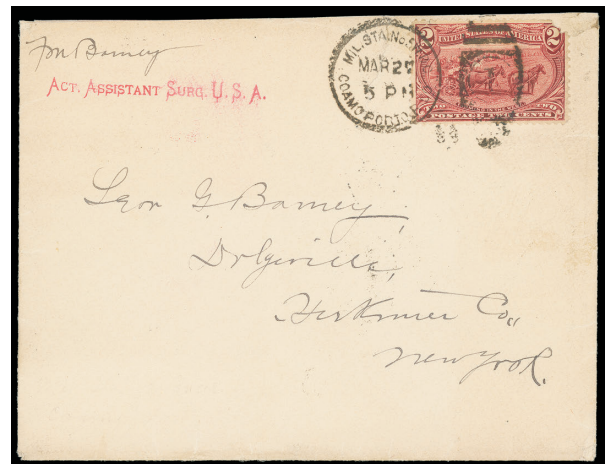 Fm Barney
ACT. ASSISTANT SURG. U. S. A.
MIL. STA. No.
MAR 29
5 PM
COAMO PORTO
2 UNITED STATES OF AMERICA 2
POSTAGE TWO CENTS
Leon G. Barney,
Dolgeville,
Herkimer Co.,
New York.